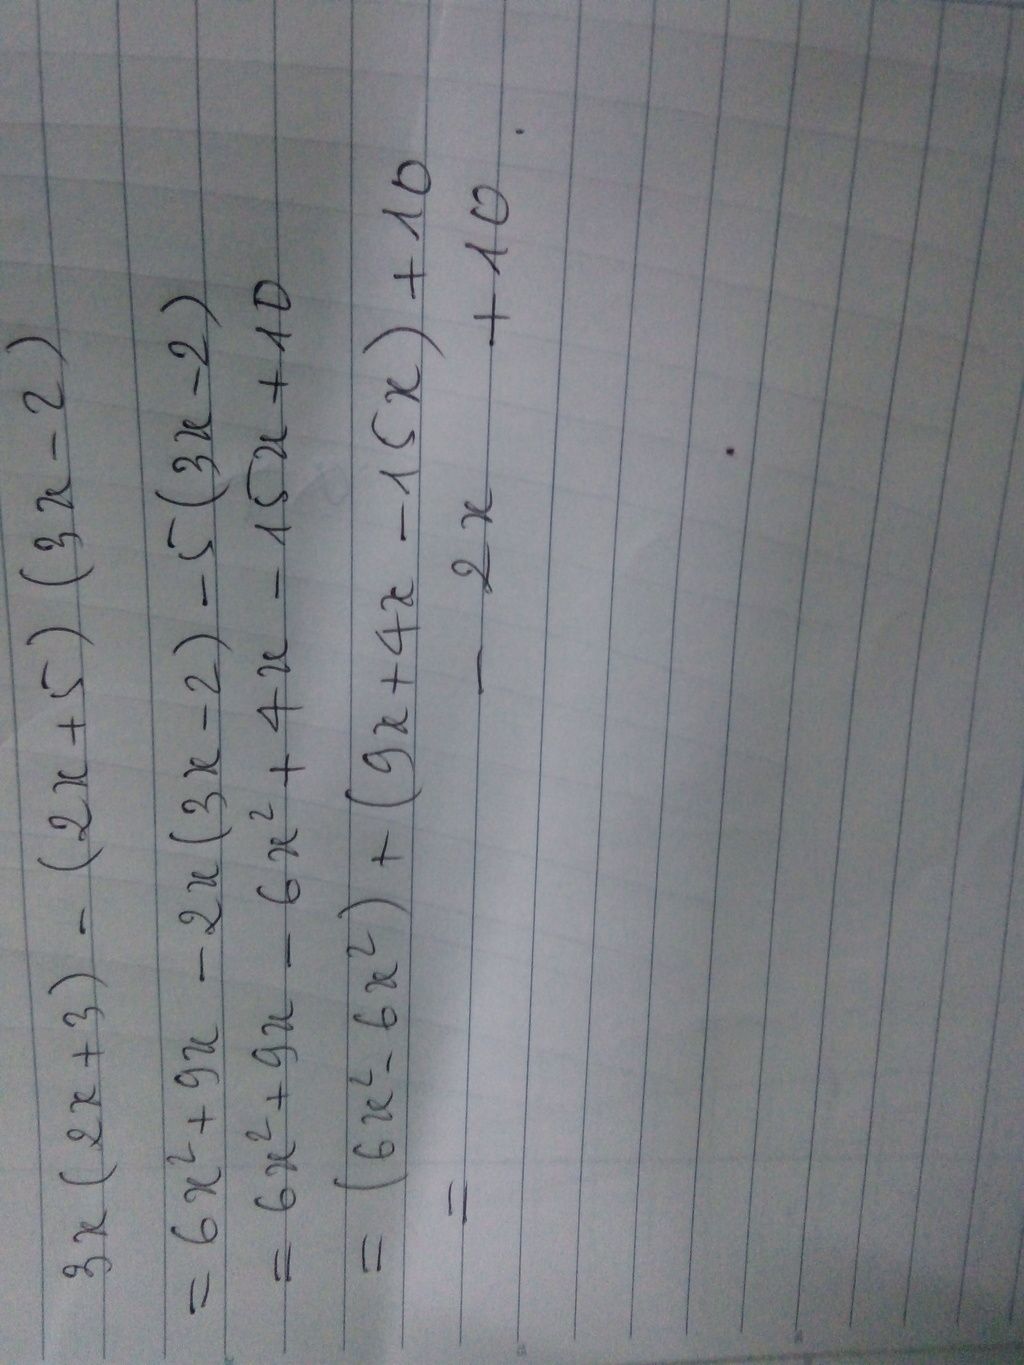 3x(2x+3) - (2x+5)(3x-2)
= 6x²+9x - 2x(3x-2) - 5(3x-2)
= 6x²+9x - 6x²+4x - 15x+10
= (6x²-6x²) + (9x+4x-15x)+10
= - 2x + 10